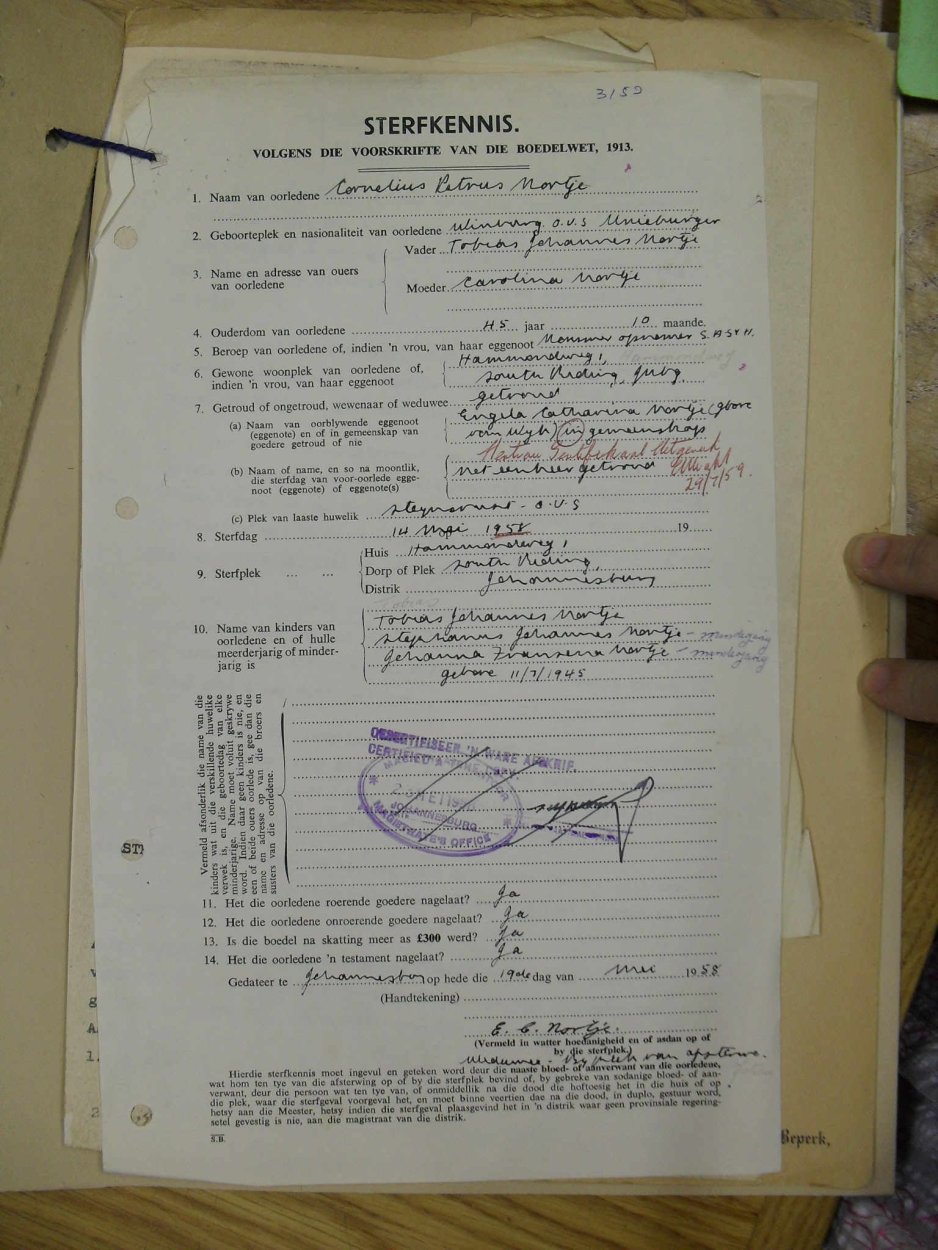 3150
STERFKENNIS.
VOLGENS DIE VOORSKRIFTE VAN DIE BOEDELWET, 1913.
1. Naam van oorledene Cornelius Petrus Nortje
2. Geboorteplek en nasionaliteit van oorledene Winburg O.V.S Unieburger
3. Name en adresse van ouers van oorledene
Vader Tobias Johannes Nortje
Moeder Carolina Nortje
4. Ouderdom van oorledene 45 jaar 10 maande.
5. Beroep van oorledene of, indien 'n vrou, van haar eggenoot Nommer opnemer S.A.S & H.
6. Gewone woonplek van oorledene of, indien 'n vrou, van haar eggenoot
Hammondweg 1,
South Hiding, Jhbg
7. Getroud of ongetroud, wewenaar of weduwee getroud
(a) Naam van oorblywende eggenoot (eggenote) en of in gemeenskap van goedere getroud of nie
Engela Catharina Nortje (gbore
van Wyk) in gemeenskap
(b) Naam of name, en so na moontlik, die sterfdag van voor-oorlede eggenoot (eggenote) of eggenote(s)
Net eenkeer getroud
29/7/59.
(c) Plek van laaste huwelik Steynsrust - O.V.S
8. Sterfdag 14 Mei 1958 19
9. Sterfplek
Huis Hammondweg 1
Dorp of Plek South Hiding,
Distrik Johannesburg
10. Name van kinders van oorledene en of hulle meerderjarig of minderjarig is
Tobias Johannes Nortje
Stephanus Johannes Nortje - minderjarig
Johanna Fransena Nortje - minderjarig
gebore 11/7/1945
Vermeld afsonderlik die name van die
kinders wat uit die verskillende huwelike
verwek is, en die geboortedag van elke
minderjarige. Name moet voluit geskrywe
word. Indien daar geen kinders is nie, en
een of beide ouers oorlede is, gee dan die
name en adresse op van die broers en
susters van die oorledene.
GESERTIFISEER 'N WARE AFSKRIF.
CERTIFIED A TRUE COPY
JOHANNESBURG
MAGISTRATE'S OFFICE
11. Het die oorledene roerende goedere nagelaat? Ja
12. Het die oorledene onroerende goedere nagelaat? Ja
13. Is die boedel na skatting meer as £300 werd? Ja
14. Het die oorledene 'n testament nagelaat? Ja
Gedateer te Johannesburg op hede die 19de dag van Mei 1958
(Handtekening)
E. C. Nortje.
(Vermeld in watter hoedanigheid en of asdan op of
by die sterfplek.)
Weduwee - By plek van afsterwe.
Hierdie sterfkennis moet ingevul en geteken word deur die naaste bloed- of aanverwant van die oorledene,
wat hom ten tye van die afsterwing op of by die sterfplek bevind of, by gebreke van sodanige bloed- of aan-
verwant, deur die persoon wat ten tye van, of onmiddellik na die dood die hoftoesig het in die huis of op
die plek, waar die sterfgeval voorgeval het, en moet binne veertien dae na die dood, in duplo, gestuur word,
hetsy aan die Meester, hetsy indien die sterfgeval plaasgevind het in 'n distrik waar geen provinsiale regering-
setel gevestig is nie, aan die magistraat van die distrik.
S.B.
Beperk,